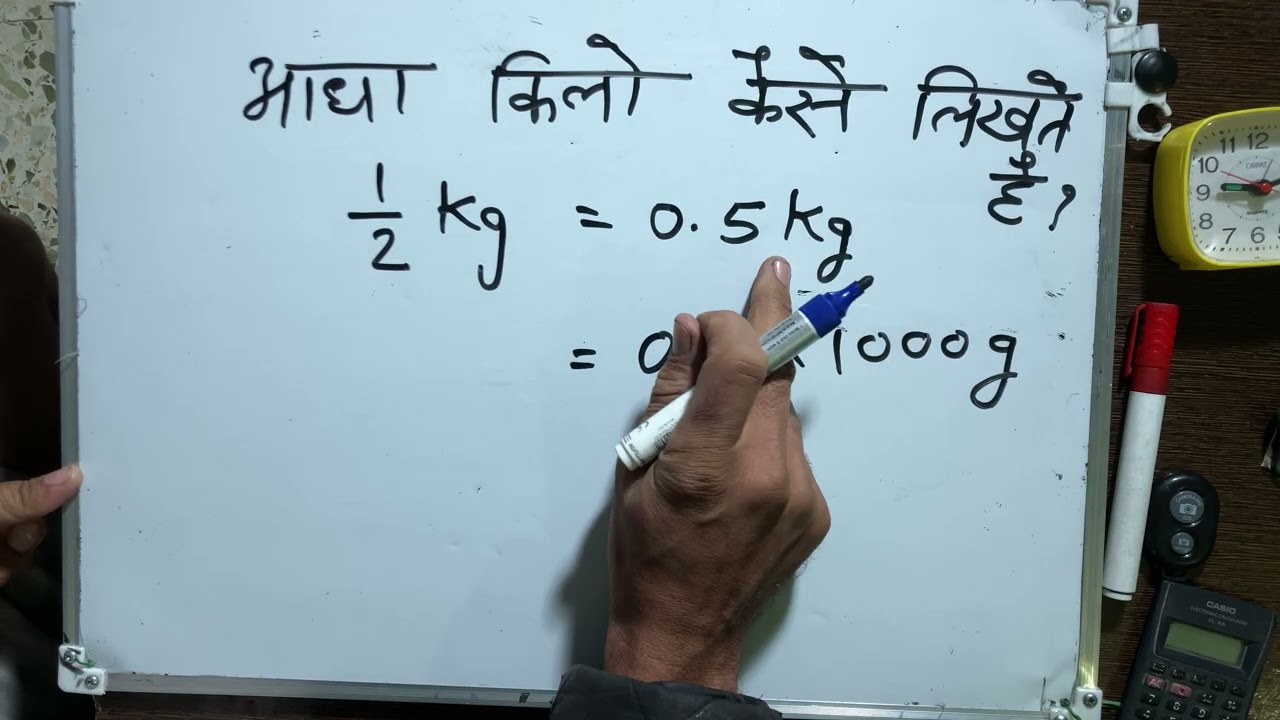 आधा किलो कैसे लिखते
हैं?
1/2 kg = 0.5 kg
= 0 1000g
11 12
10
9
8
7 6 5
CASIO
AC